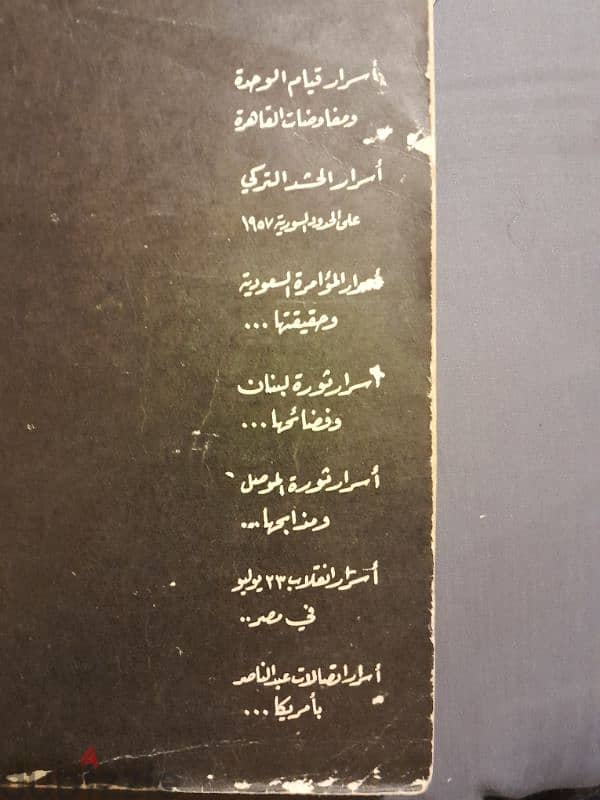 أسرار قيام الوحدة
ومفاوضات القاهرة
أسرار الحشد التركي
على الحدود السورية ١٩٥٧
أسرار المؤامرة السعودية
وحقيقتها ...
أسرار ثورة لبنان
وفضائحها ...
أسرار ثورة الموصل
ومذابحها ...
أسرار انقلاب ٢٣ يوليو
في مصر ..
أسرار اتصالات عبد الناصر
بأمريكا ...